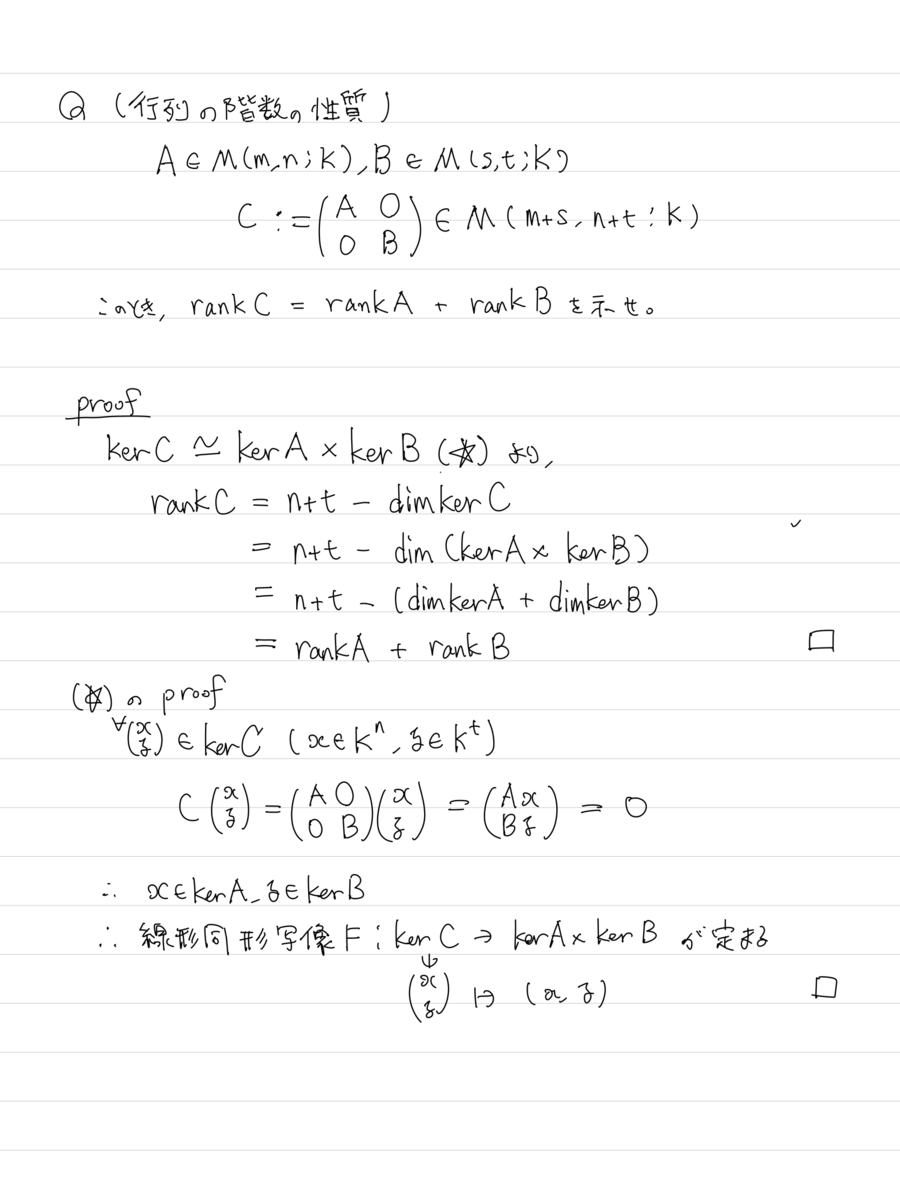 Q (行列の階数の性質)
A ∈ M(m,n;K), B ∈ M(s,t;K)
C := (A O
O B) ∈ M(m+s, n+t; K)
このとき, rank C = rank A + rank B を示せ。
proof
ker C ≃ ker A × ker B (☆) より,
rank C = n+t - dim ker C
= n+t - dim (ker A × ker B)
= n+t - (dim ker A + dim ker B)
= rank A + rank B □
(☆) の proof
∀(x
z) ∈ ker C (x ∈ Kⁿ, z ∈ Kᵗ)
C (x
z) = (A O
O B)(x
z) = (Ax
Bz) = 0
∴ x ∈ ker A, z ∈ ker B
∴ 線形同形写像 F : ker C → ker A × ker B が定まる
(x
z) ↦ (x, z) □